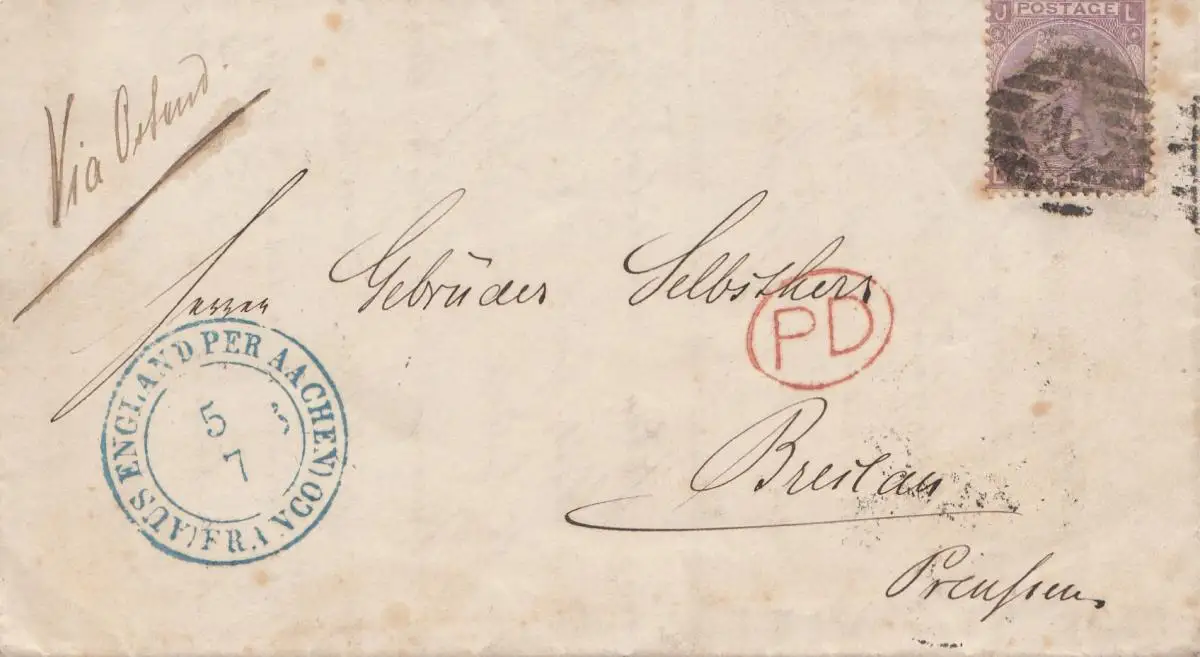 J POSTAGE L
Via Ostend.
Herren Gebrüder Selbstherr
PD
AUS ENGLAND PER AACHEN) FRANCO
5
7
Breslau
Preußen